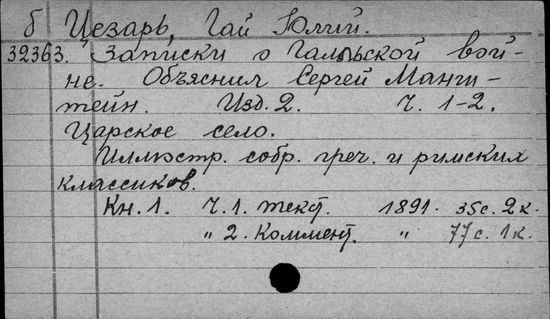 б Цезарь, Гай Юлий.
32363. Записки о Галльской вой-
не. Объяснил Сергей Манш-
тейн. Изд. 2. Ч. 1-2.
Царское село.
Иллюстр. собр. греч. и римских
классиков.
Кн. 1. Ч. 1. текст. 1891. 35 с. 2 к.
" 2. Коммент. " 77 с. 1 к.